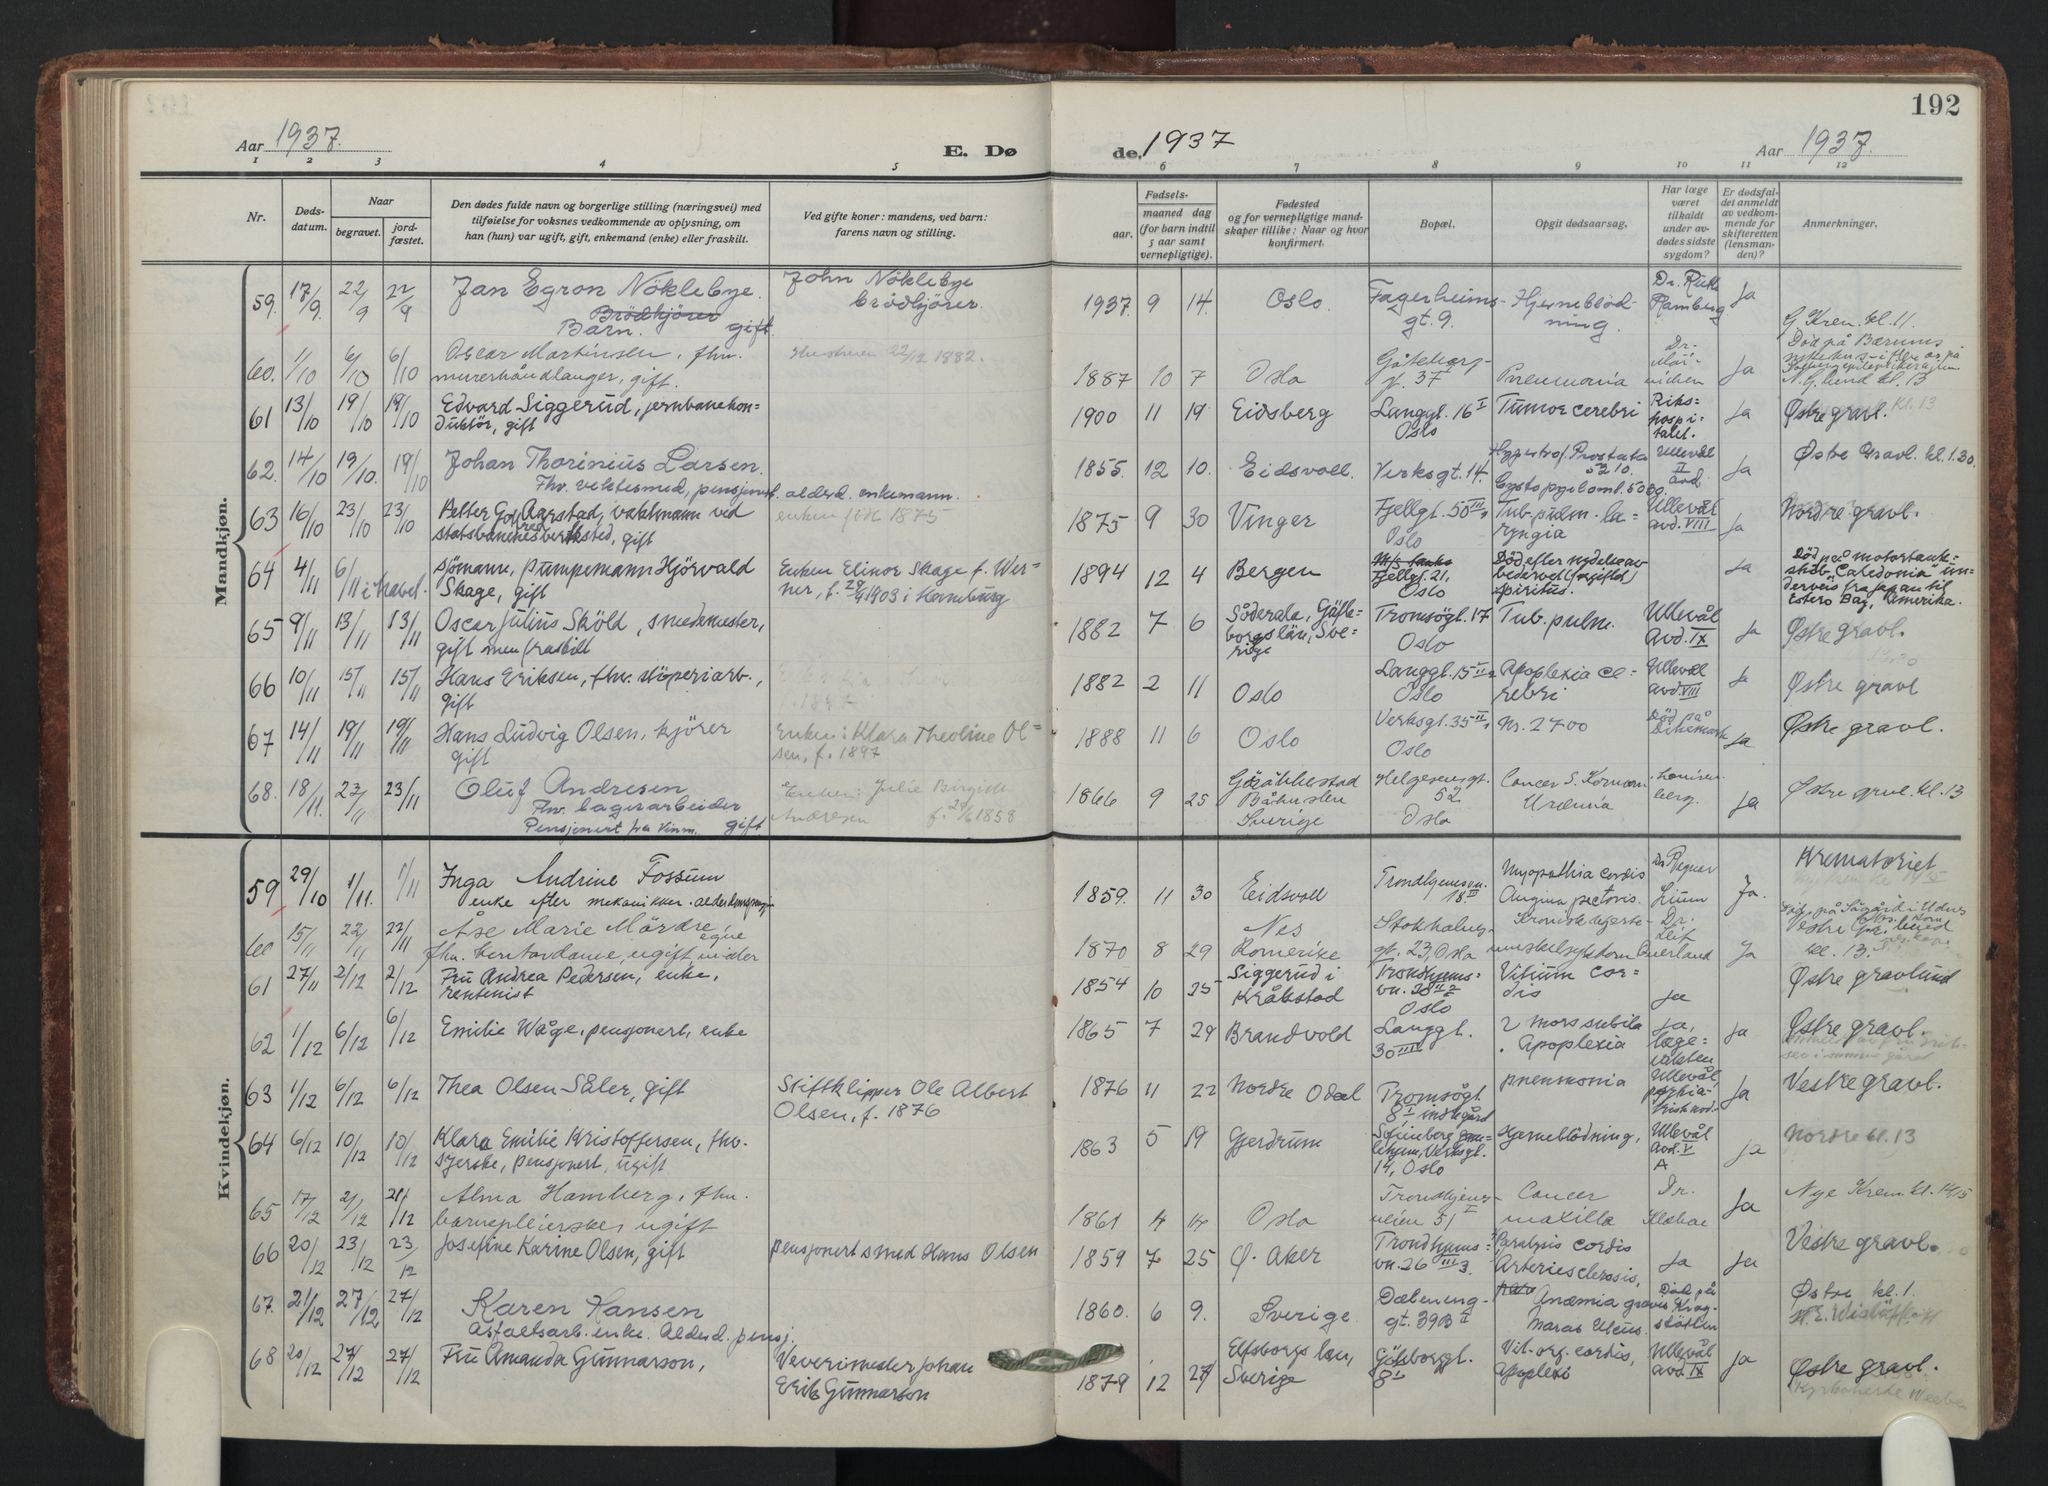 192
Aar 1937.
E. Dø
de, 1937
Aar 1937.
1 2 3 4 5 6 7 8 9 10 11 12
Nr.
Døds-
datum.
Naar
begravet.
jord-
fæstet.
Den dødes fulde navn og borgerlige stilling (næringsvei) med
tilføielse for voksnes vedkommende av oplysning, om
han (hun) var ugift, gift, enkemand (enke) eller fraskilt.
Ved gifte koner: mandens, ved barn:
farens navn og stilling.
Fødsels-
aar.
maaned dag
(for barn indtil
5 aar samt
vernepligtige).
Fødested
og for vernepligtige mand-
skaper tillike: Naar og hvor
konfirmert.
Bopæl.
Opgit dødsaarsag.
Har læge
været
tilkaldt
under av-
dødes sidste
sygdom?
Er dødsfal-
det anmeldt
av vedkom-
mende for
skifteretten
(lensman-
den)?
Anmerkninger.
Mandkjøn.
59. 17/9. 22/9 22/9 Jan Egron Nöklebye.
Brödkjörer
Barn. gift.
John Nöklebye
brödkjörer.
1937. 9 14. Oslo.
Fagerheims-
gt. 9.
Hjerneblöd-
ning.
Dr. Riks
Ramberg
Ja
G. Krem. kl. 11.
60. 1/10 6/10 6/10 Oscar Martinsen, fhv.
murerhåndlanger, gift.
22/12 1882.
1887 10 7 Oslo
Göteborg-
gt. 37
Pneumonia
Dr.
Ja
Död på Bærums
N. G. lund kl. 13
61 13/10 19/10 19/10 Edvard Siggerud, jernbanekon=
duktör, gift
1900 11 19 Eidsberg
Langgt. 16 I
Oslo
Tumor cerebri
Riks=
hospi-
talet.
Ja
Østre gravl. kl. 13
62. 14/10 19/10. 19/10 Johan Thorinius Larsen.
Fhv. vektesmed, pensjonert. alderd. enkemann.
1855. 12 10. Eidsvoll.
Verksgt. 14.
Hypertrof. Prostata
Ullevål
II
avd.
Ja
Østre Gravl. kl. 1.30.
63 16/10 23/10 23/10 Petter Gotfred Aarstad, vaktmann ved
statsbanenes verksted, gift
enken född 1875
1875 9 30 Vinger
Fjellgt. 50 III,
Oslo
Tub. pulm. la=
ryngia
Ullevål
avd. VIII
Ja
Nordre gravl.
64 4/11 6/11 i havet. sjömann, pumpemann Hjörvald
Skage, gift
Enken Elinor Skage f. Wer=
ner, f. 29/4 1903 i Hamburg
1894 12 4 Bergen
M/s tanks
Fjellgt. 21,
Oslo
Död efter nydelse av
bedervet (forgiftet)
spiritus.
Ja
Död på motortank=
skib "Caledonia" un=
derveis fra Japan til
Estero Bay, Amerika.
65 9/11 13/11 13/11 Oscar Julius Sköld, smedemester,
gift men fraskilt
1882 7 6 Söderala, Gäfle-
borgs län, Sve=
rige
Tromsögt. 17
Oslo
Tub. pulm.
Ullevål
avd. IX
Ja
Østre gravl.
66 10/11 15/11 15/11 Hans Eriksen, fhv. stöperiarb.,
gift
1882 2 11 Oslo
Langgt. 15 II 2
Oslo
Apoplexia ce-
rebri
Ullevål
avd. VIII
Ja
Østre gravl
67 14/11 19/11 19/11 Hans Ludvig Olsen, kjörer
gift
Enken: Klara Theoline Ol=
sen, f. 1897
1888 11 6 Oslo
Verksgt. 35 II,
Oslo
Nr. 2700
Död på
Dikemark
Ja
Østre gravl.
68. 18/11. 23/11 23/11 Oluf Andresen
Fhv. lagerarbeider
Pensjonert fra Vinm. gift
Enken: Julie Birgitte
Andresen f. 29/6 1858
1866 9 25
Båhuslen
Sverige
Helgesensgt.
52
Oslo
Urämia
Lovisen-
berg.
Ja
Østre gravl. kl. 13
Kvindekjøn.
59 29/10 1/11. 1/11 Inga Andrine Fossum
enke efter mekaniker. alderdomspensj.
1859. 11 30 Eidsvoll
Trondhjemsvn.
18 II
Myopathia cordis
Angina pectoris.
Dr. Regnar
Lium
Ja.
Krematoriet
60 15/11 22/11 22/11 Åse Marie Mördre
fhv. kontordame, ugift
1870 8 29 Nes
Romerike
Stokholms-
gt. 23, Oslo
Kronisk hjerte-
muskelsykdom
Dr.
Leif
Överland
Ja
Vestre
kl. 13.
61 27/11 2/12 2/12 Fru Andrea Pedersen, enke,
rentenist
1854 10 25 Siggerud i
Kråkstad
Trondhjems=
vn. 28 II 2
Oslo
Vitium cor=
dis
Ja
Østre gravlund
62 1/12 6/12 6/12 Emilie Wåge, pensjonert, enke
1865 7 29 Brandvold
Langgt.
30 III
? Mors subita
. Apoplexia
Ja,
læge=
vakten
Ja
Østre gravl.
63 1/12 6/12 6/12 Thea Olsen Sæler, gift
Stiftklipper Ole Albert
Olsen, f. 1876
1876 11 22 Nordre Odal
Tromsögt.
8 I
pneumonia
Ullevål,
psykia-
trisk avd.
Ja
Vestre gravl.
64 6/12 10/12 10/12 Klara Emilie Kristoffersen, fhv.
syerske, pensjonert, ugift
1863 5 19 Gjerdrum
Sofienberg gam-
lehjem, Verksgt.
14, Oslo
Hjerneblödning,
Ullevål
avd. V
A
Ja
Nordre kl. 13
65 17/12 21/12 21/12 Alma Hamberg, fhv.
barnepleierske, ugift
1861 4 14 Oslo
Trondhjems-
veien 51 I
Cancer
maxilla
Dr.
Ja
Nye Krem. kl. 14 15
66 20/12 23/12 23/12 Josefine Karine Olsen, gift
pensjonert smed Hans Olsen
1859 7 25 Ø. Aker
Trondhjems=
vn. 26 III 3
Paralysis cordis
Arteriesclerosis,
Ja
Ja
Vestre gravl.
67. 21/12 27/12 27/12 Karen Hansen
Asfaltsarb. enke. Alderd. pensj.
1860. 6 9. Sverige.
Dæleneng-
gt. 39B I
Anæmia gravis
Ulcus.
Död på
Krog-
stötten
Østre kl. 1.
68 20/12 27/12 27/12 Fru Amanda Gunnarson,
Vevermester Johan
Erik Gunnarson
1879 12 27 Elfsborgs län,
Sverige
Göteborggt.
8 I
Vit. org. cordis,
apoplexi
Ullevål
avd. IX
Ja
Østre gravl.